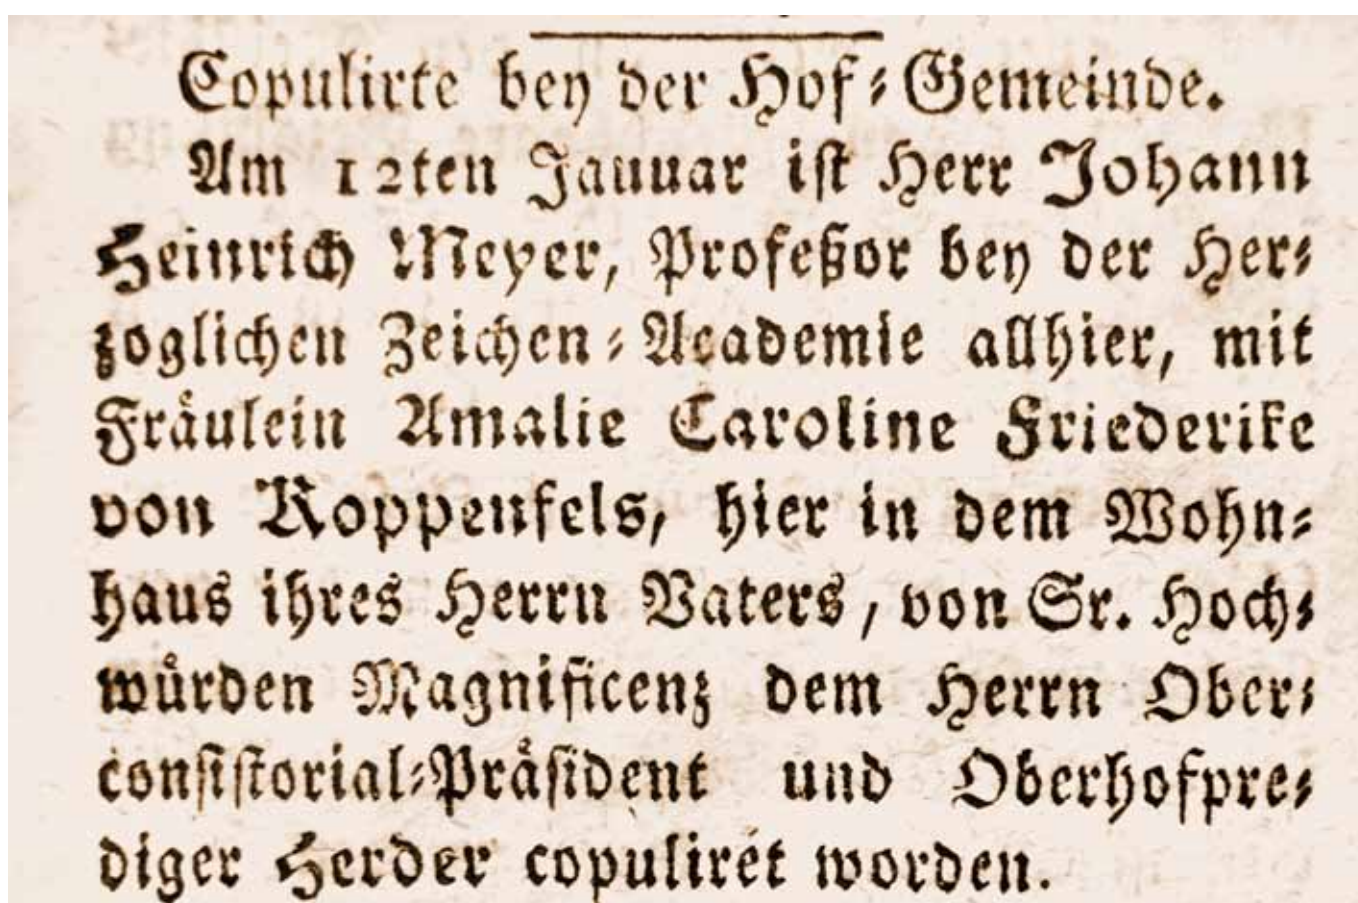 Copulirte bey der Hof⸗Gemeinde.
Am 12ten Januar ist Herr Johann
Heinrich Meyer, Profeßor bey der Her⸗
zoglichen Zeichen⸗Academie allhier, mit
Fräulein Amalie Caroline Friederike
von Koppenfels, hier in dem Wohn⸗
haus ihres Herrn Vaters, von Sr. Hoch⸗
würden Magnificenz dem Herrn Ober⸗
consistorial⸗Präsident und Oberhofpre⸗
diger Herder copuliret worden.